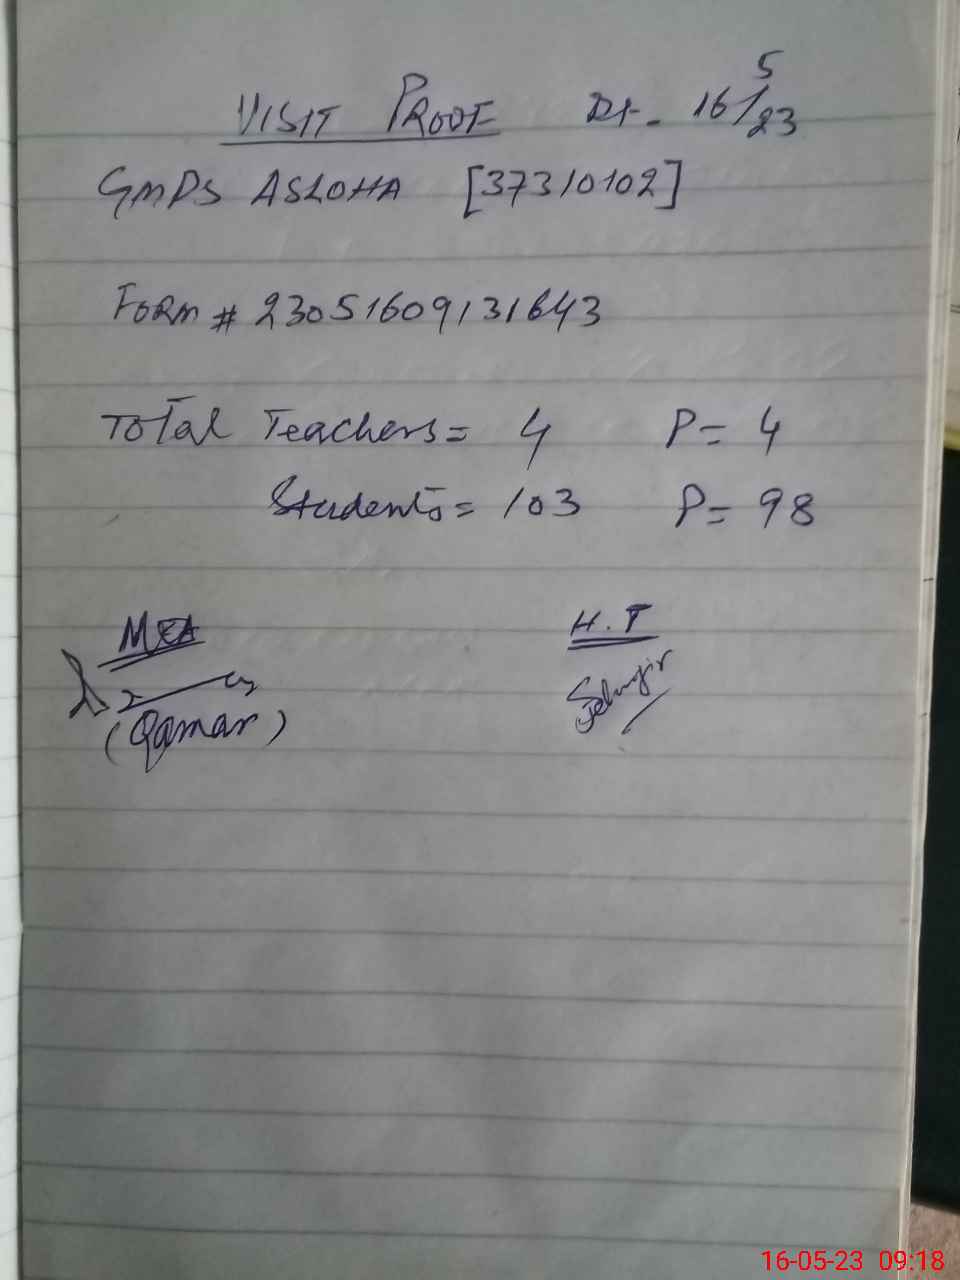 VISIT PROOF Dt- 16/5/23
GMPS ASLOHA [37310102]
FORM # 23051609131643
Total Teachers = 4 P = 4
Students = 103 P = 98
MEA H.T
(Qamar)
16-05-23 09:18